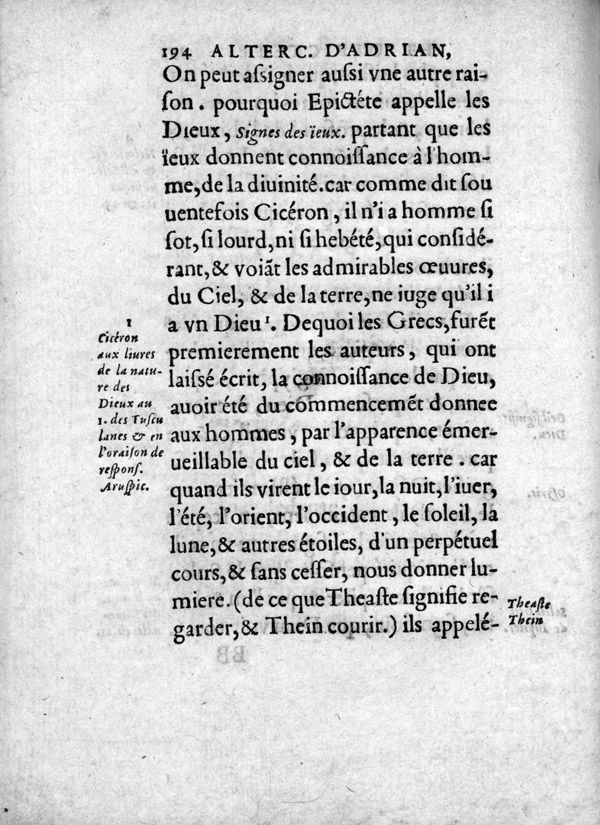 194 ALTERC. D'ADRIAN,
On peut aſsigner auſsi vne autre rai-
ſon. pourquoi Epictéte appelle les
Dieux, Signes des ïeux. partant que les
ïeux donnent connoiſſance à l'hom-
me, de la diuinité. car comme dit ſou
uentefois Cicéron, il n'i a homme ſi
ſot, ſi lourd, ni ſi hebété, qui conſidé-
rant, & voiãt les admirables œuures,
du Ciel, & de la terre, ne iuge qu'il i
a vn Dieu¹. Dequoi les Grecs, furẽt
premierement les auteurs, qui ont
laiſſé écrit, la connoiſſance de Dieu,
auoir été du commencemẽt donnee
aux hommes, par l'apparence émer-
ueillable du ciel, & de la terre. car
quand ils virent le iour, la nuit, l'iuer,
l'été, l'orient, l'occident, le ſoleil, la
lune, & autres étoiles, d'un perpétuel
cours, & ſans ceſſer, nous donner lu-
miere. (de ce que Theaſte ſignifie re-
garder, & Theîn courir.) ils appelé-
1
Cicéron
aux liures
de la natu-
re des
Dieux au
1. des Tuſcu
lanes & en
l'oraiſon de
reſponſ.
Aruſpic.
Theaſte
Thein